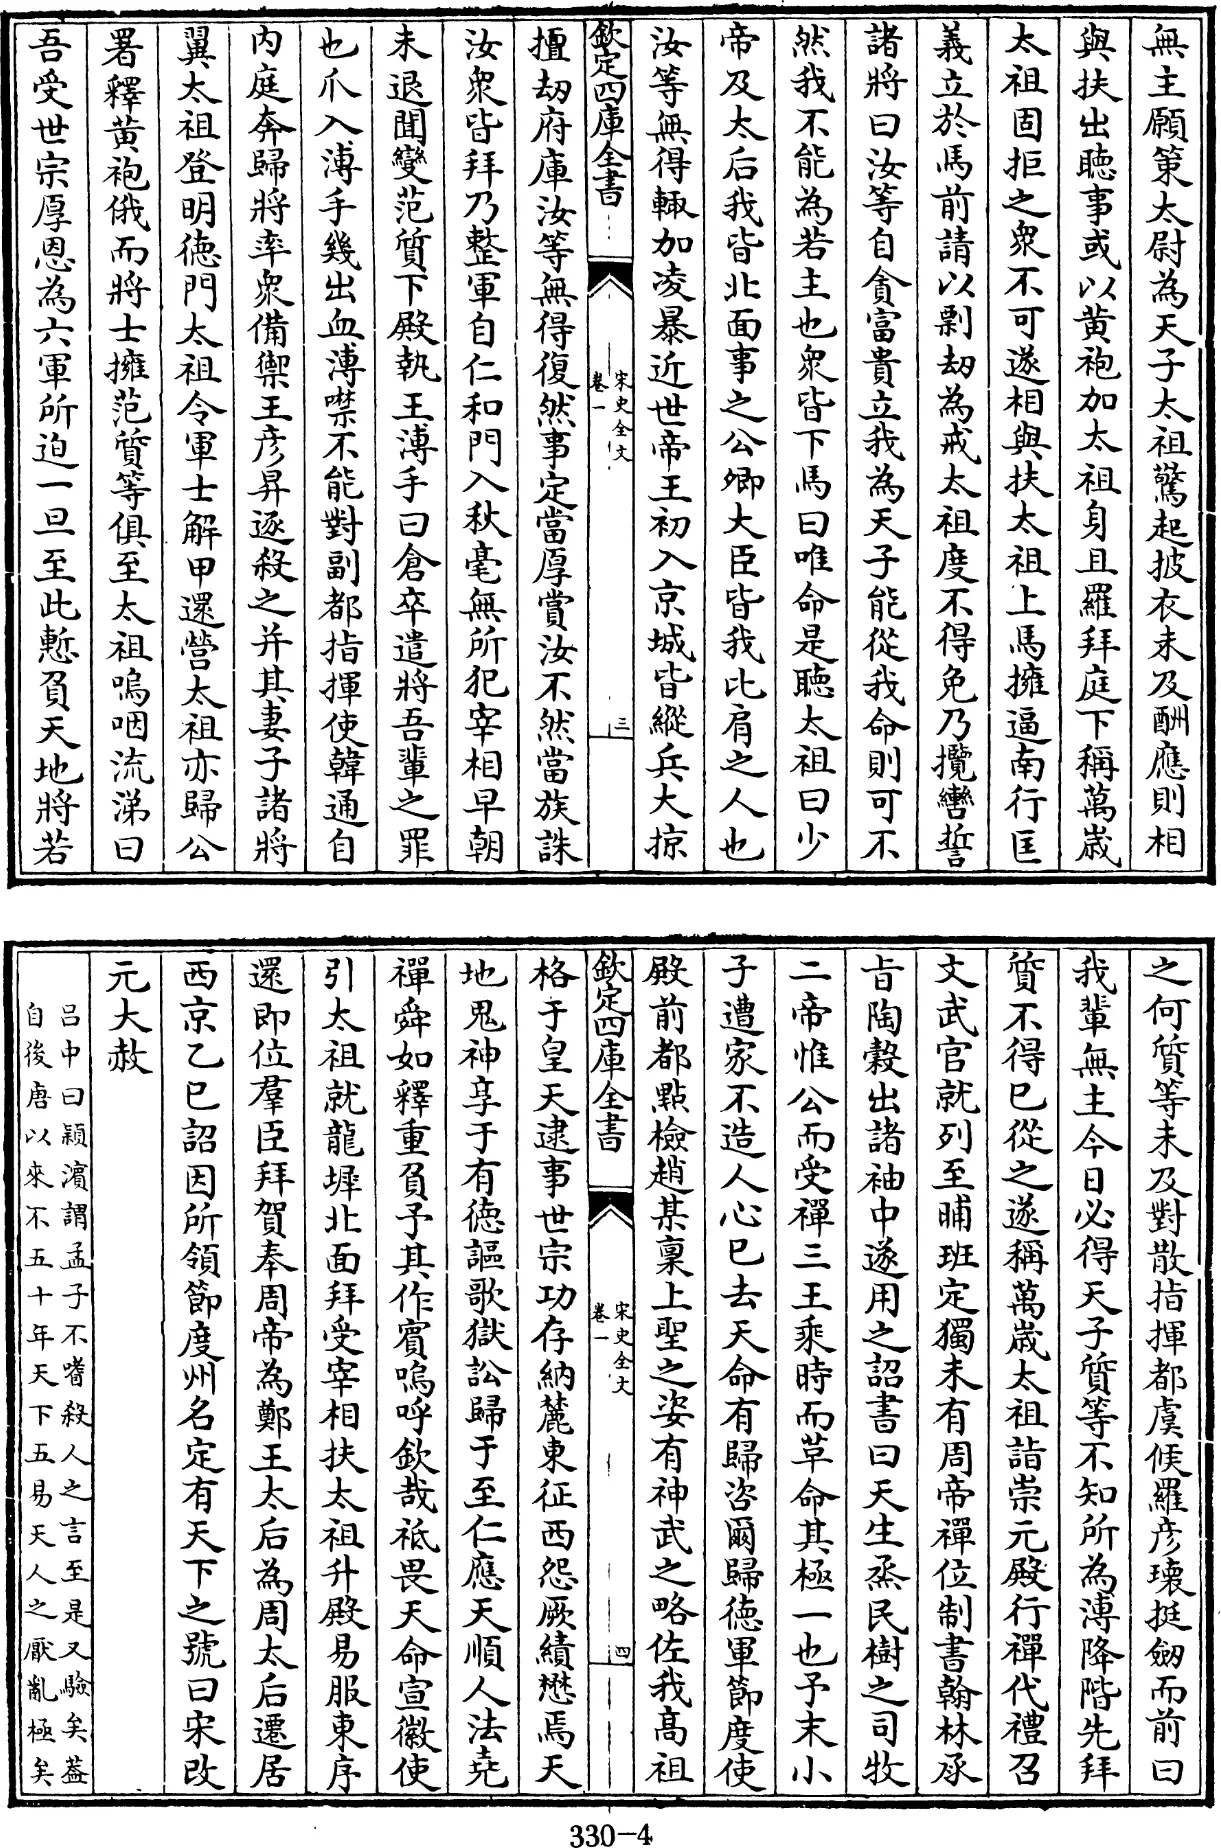 無主願策太尉為天子太祖驚起披衣未及酬應則相
與扶出聽事或以黄袍加太祖身且羅拜庭下稱萬歳
太祖固拒之衆不可遂相與扶太祖上馬擁逼南行匡
義立於馬前請以剽劫為戒太祖度不得免乃攬轡誓
諸將曰汝等自貪富貴立我為天子能從我命則可不
然我不能為若主也衆皆下馬曰唯命是聽太祖曰少
帝及太后我皆北面事之公卿大臣皆我比肩之人也
汝等無得輙加凌暴近世帝王初入京城皆縱兵大掠
欽定四庫全書
宋史全文
卷一
三
擅劫府庫汝等無得復然事定當厚賞汝不然當族誅
汝衆皆拜乃整軍自仁和門入秋毫無所犯宰相早朝
未退聞變范質下殿執王溥手曰倉卒遣將吾輩之罪
也爪入溥手幾出血溥噤不能對副都指揮使韓通自
内庭奔歸將率衆備禦王彦昇逐殺之并其妻子諸將
翼太祖登明徳門太祖令軍士解甲還營太祖亦歸公
署釋黄袍俄而將士擁范質等俱至太祖嗚咽流涕曰
吾受世宗厚恩為六軍所迫一旦至此慙負天地將若
之何質等未及對散指揮都虞候羅彦瓌挺劒而前曰
我輩無主今日必得天子質等不知所為溥降階先拜
質不得已從之遂稱萬歳太祖詣崇元殿行禪代禮召
文武官就列至晡班定獨未有周帝禪位制書翰林承
旨陶穀出諸袖中遂用之詔書曰天生烝民樹之司牧
二帝惟公而受禪三王乘時而革命其極一也予末小
子遭家不造人心已去天命有歸咨爾歸徳軍節度使
殿前都點檢趙某稟上聖之姿有神武之略佐我髙祖
欽定四庫全書
宋史全文
卷一
四
格于皇天逮事世宗功存納麓東征西怨厥績懋焉天
地鬼神享于有徳謳歌獄訟歸于至仁應天順人法堯
禪舜如釋重負予其作賓嗚呼欽哉祗畏天命宣徽使
引太祖就龍墀北面拜受宰相扶太祖升殿易服東序
還即位羣臣拜賀奉周帝為鄭王太后為周太后遷居
西京乙巳詔因所領節度州名定有天下之號曰宋改
元大赦
吕中曰潁濵謂孟子不嗜殺人之言至是又驗矣葢
自後唐以來不五十年天下五易天人之厭亂極矣
330-4